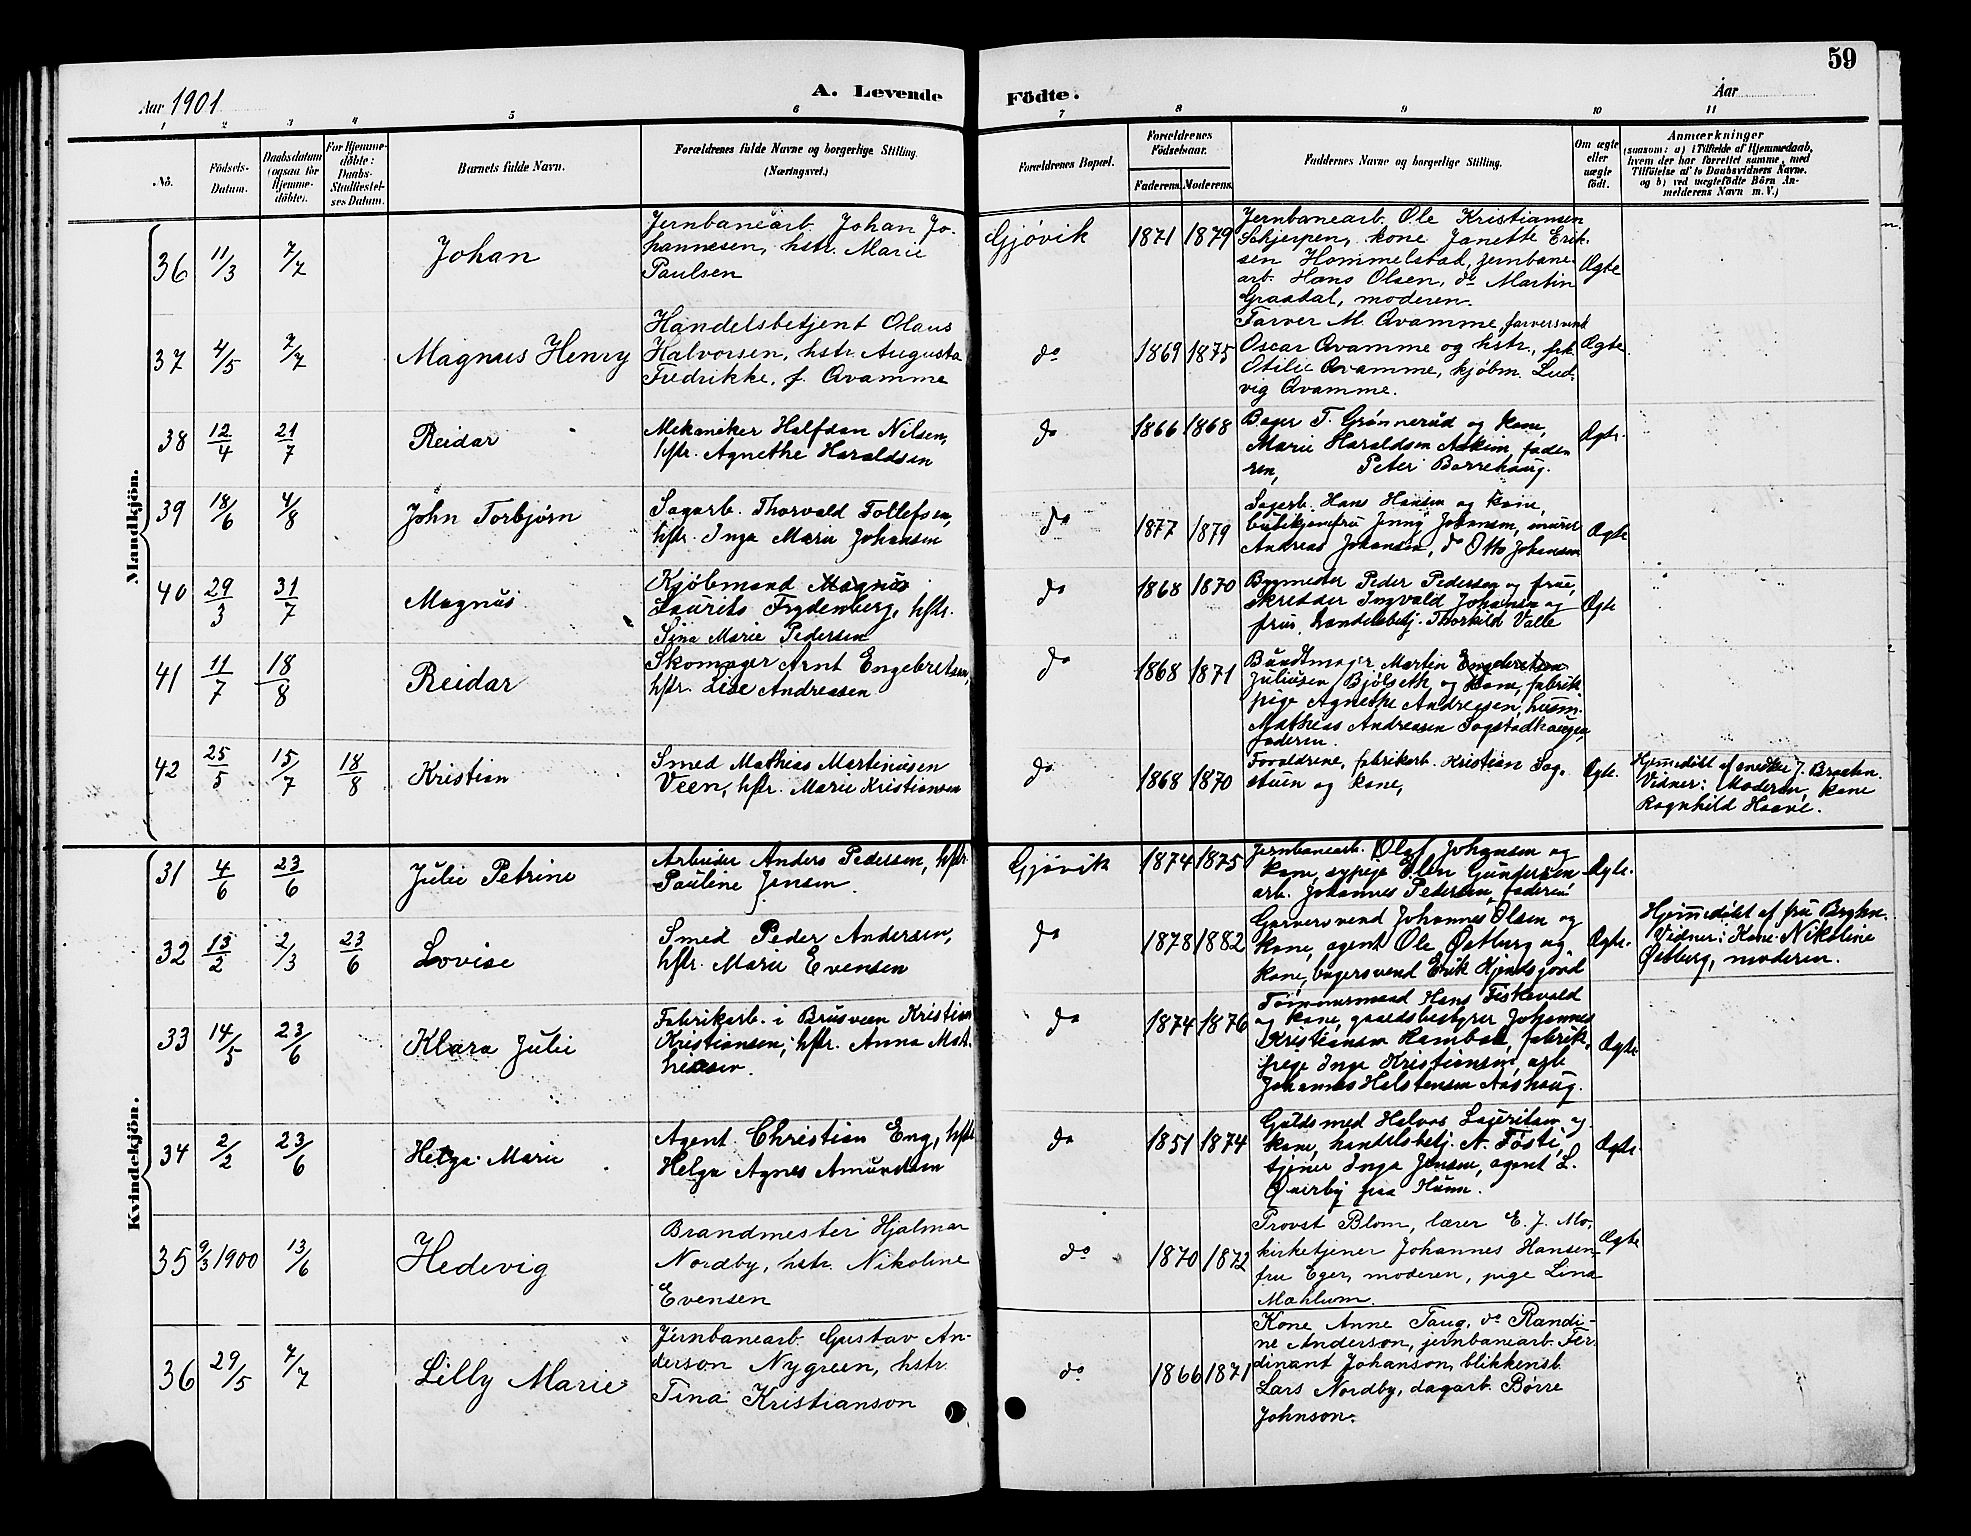 59
Aar 1901
A. Levende
Födte.
Aar
1 2 3 4 5 6 7 8 9 10 11
No.
Födsels-
Datum.
Daabsdatum
(ogsaa for
Hjemme-
döbte).
For Hjemme-
döbte:
Daabs-
Stadfæstel-
ses Datum.
Barnets fulde Navn.
Forældrenes fulde Navne og borgerlige Stilling.
(Næringsvei.)
Forældrenes Bopæl.
Forældrenes
Födselsaar.
Faderens. Moderens.
Faddernes Navne og borgerlige Stilling.
Om ægte
eller
uægte
født.
Anmærkninger
(saasom: a) i Tilfælde af Hjemmedaab,
hvem der har forrettet samme, med
Tilföielse af to Daabsvidners Navne,
og b) ved uægtefödte Börn An-
melderens Navn m. V.)
Mandkjön.
36 11/3 7/7 Johan
Jernbanearb. Johan Jo-
hannesen, hstr. Marie
Paulsen
Gjøvik 1871 1879
Jernbanearb. Ole Kristiansen
Skjerpen, kone Janette Erik-
sen Hommelstad, jernbane-
arb. Hans Olsen, do Martin
Graadal, moderen.
Ægte
37 4/5 7/7 Magnus Henry
Handelsbetjent Olaus
Halvorsen, hstr. Augusta
Fredrikke, f. Qvamme
do 1869 1875
Farver M. Qvamme, farversvend
Oscar Qvamme og hstr., frk.
Otilie Qvamme, kjøbm. Lud-
vig Qvamme.
Ægte
38 12/4 21/7 Reidar
Mekaniker Halfdan Nilsen,
hstr. Agnethe Haraldsen
do 1866 1868
Bager T. Grønnerud og kone,
Marie Haraldsen Askim, fade-
ren, Peter Borrehaug.
Ægte.
39 18/6 4/8 John Torbjørn
Sagarb. Thorvald Tollefsen,
hstr. Inga Marie Johansen
do 1877 1879
Sagarb. Hans Hansen og kone,
Jenny Johansen, murer
Andreas Johansen, do Otto Johansen
Ægte
40 29/3 31/7 Magnus
Kjøbmand Magnus
Laurits Frydenberg, hstr.
Sina Marie Pedersen
do 1868 1870
Bygmester Peder Pedersen og frue,
skredder Ingvald Johansen og
frue, handelsbetj. Thorkild Valle
Ægte
41 11/7 18/8 Reidar
Skomager Arnt Engebretsen,
hstr. Lise Andreasen
do 1868 1871
Buntmager Martin Engebretsen
Juliusen Bjølseth og kone, fabrik-
pige Agnethe Andreasen, husm.
Mathias Andreasen Sogstadhaugen,
faderen.
42 25/5 15/7 18/8 Kristian
Smed Mathias Martiniusen
Veen, hstr. Marie Kristiansen
do 1868 1870
Forældrene, fabrikarb. Kristian Sog-
stuen og kone,
Ægte.
Hjemmedøbt af snedker J. Braaten.
Vidner: Moderen, kone
Ragnhild Haave.
Kvindekjön.
31 4/6 23/6 Julie Petrine
Arbeider Anders Pedersen, hstr.
Pauline Jensen.
Gjøvik 1874 1875
Jernbanearb. Olaf Johansen og
kone, sypige Elen Gundersen
arb. Johannes Pedersen, faderen
Ægte.
32 13/2 2/3 23/6 Lovise
Smed Peder Andersen,
hstr. Marie Evensen
do 1878 1882
Garversvend Johannes Olsen og
kone, agent Ole Østberg og
kone, bagersvend Erik
Ægte.
Hjemmedøbt af fru
Vidner: Kone Nikoline
Østberg, moderen.
33 14/5 23/6 Klara Julie
Fabrikarb. i Brusveen Kristian
Kristiansen, hstr. Anna Mat-
hiasen.
do 1874 1876
Tømmermand Hans Fiskevold
og kone, gaardsbestyrer Johannes
Kristiansen Rambæk, fabrik-
pige Inga Kristiansen, arb.
Johannes Halstensen Aashaug.
Ægte
34 2/2 23/6 Helga Marie
Agent Christian Eng, hstr.
Helga Agnes Amundsen
do 1851 1874
Guldsmed Halvor Lauritsen og
kone, handelsbetj. N. Føsti,
tjener Inga Jensen, agent L.
Øverby fra Hunn.
Ægte.
35 9/3 1900 13/6 Hedevig
Brandmester Hjalmar
Nordby, hstr. Nikoline
Evensen
do 1870 1872
Provst Blom, lærer E. J. Mo,
kirketjener Johannes Hansen,
fru Eger, moderen, pige Lina
Mæhlum.
Ægte
36 29/5 7/7 Lilly Marie
Jernbanearb. Gustav An-
derson Nygreen, hstr.
Tina Kristianson
do 1866 1871
Kone Anne Taug, do Randi-
ne Anderson, jernbanearb. Fer-
dinant Johanson, blikkensl.
Lars Nordby, dagarb. Børre
Johnson.